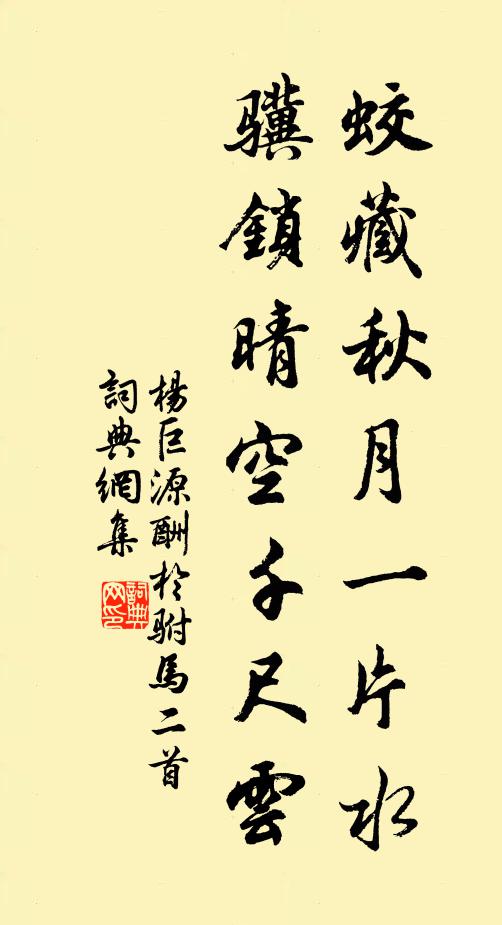 蛟藏秋月一片水
驥鎖晴空千尺雲
楊巨源酬於駙馬二首
詞典網集
詞典网印